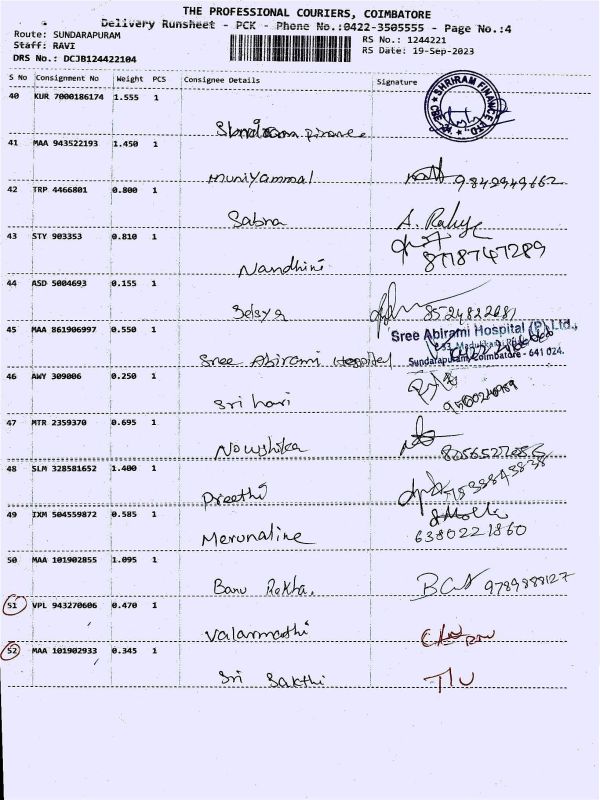 THE PROFESSIONAL COURIERS, COIMBATORE
Delivery Runsheet - PCK - Phone No.:0422-3505555 - Page No.:4
Route: SUNDARAPURAM
Staff: RAVI
DRS No.: DCJB124422104
RS No.: 1244221
RS Date: 19-Sep-2023
S No Consignment No Weight PCS Consignee Details Signature
40 KUR 7000186174 1.555 1
SHRIRAM FINANCE LTD.
41 MAA 943522193 1.450 1
Muniyammal 9842949662
42 TRP 4466801 0.800 1
Sabna A.
43 STY 903353 0.810 1
Nandhini 8778747289
44 ASD 5004693 0.155 1
8524822081
45 MAA 861906997 0.550 1
Sree Abirami Hospital (P) Ltd.,
Sree Abirami Hospital
Sundarapuram, Coimbatore - 641 024.
46 AWY 309006 0.250 1
Sri hari
47 MTR 2359370 0.695 1
Nowshika
48 SLM 328581652 1.400 1
Preethi
49 IXM 504559872 0.585 1
Merunaline 6380221860
50 MAA 101902855 1.095 1
Banu Rekha. 9789888127
51 VPL 943270606 0.470 1
Valarmathi
52 MAA 101902933 0.345 1
Sri Sakthi